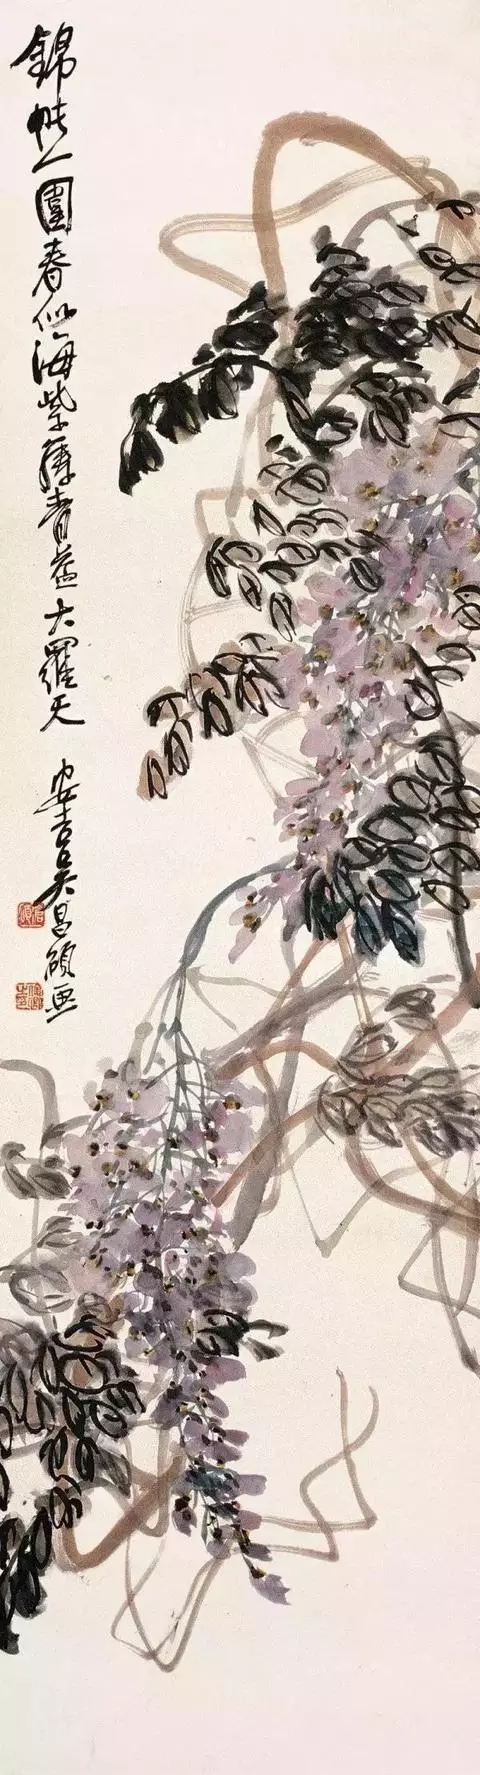 錦帳一圍春似海紫藤青蓋大羅天 安吉吳昌碩画